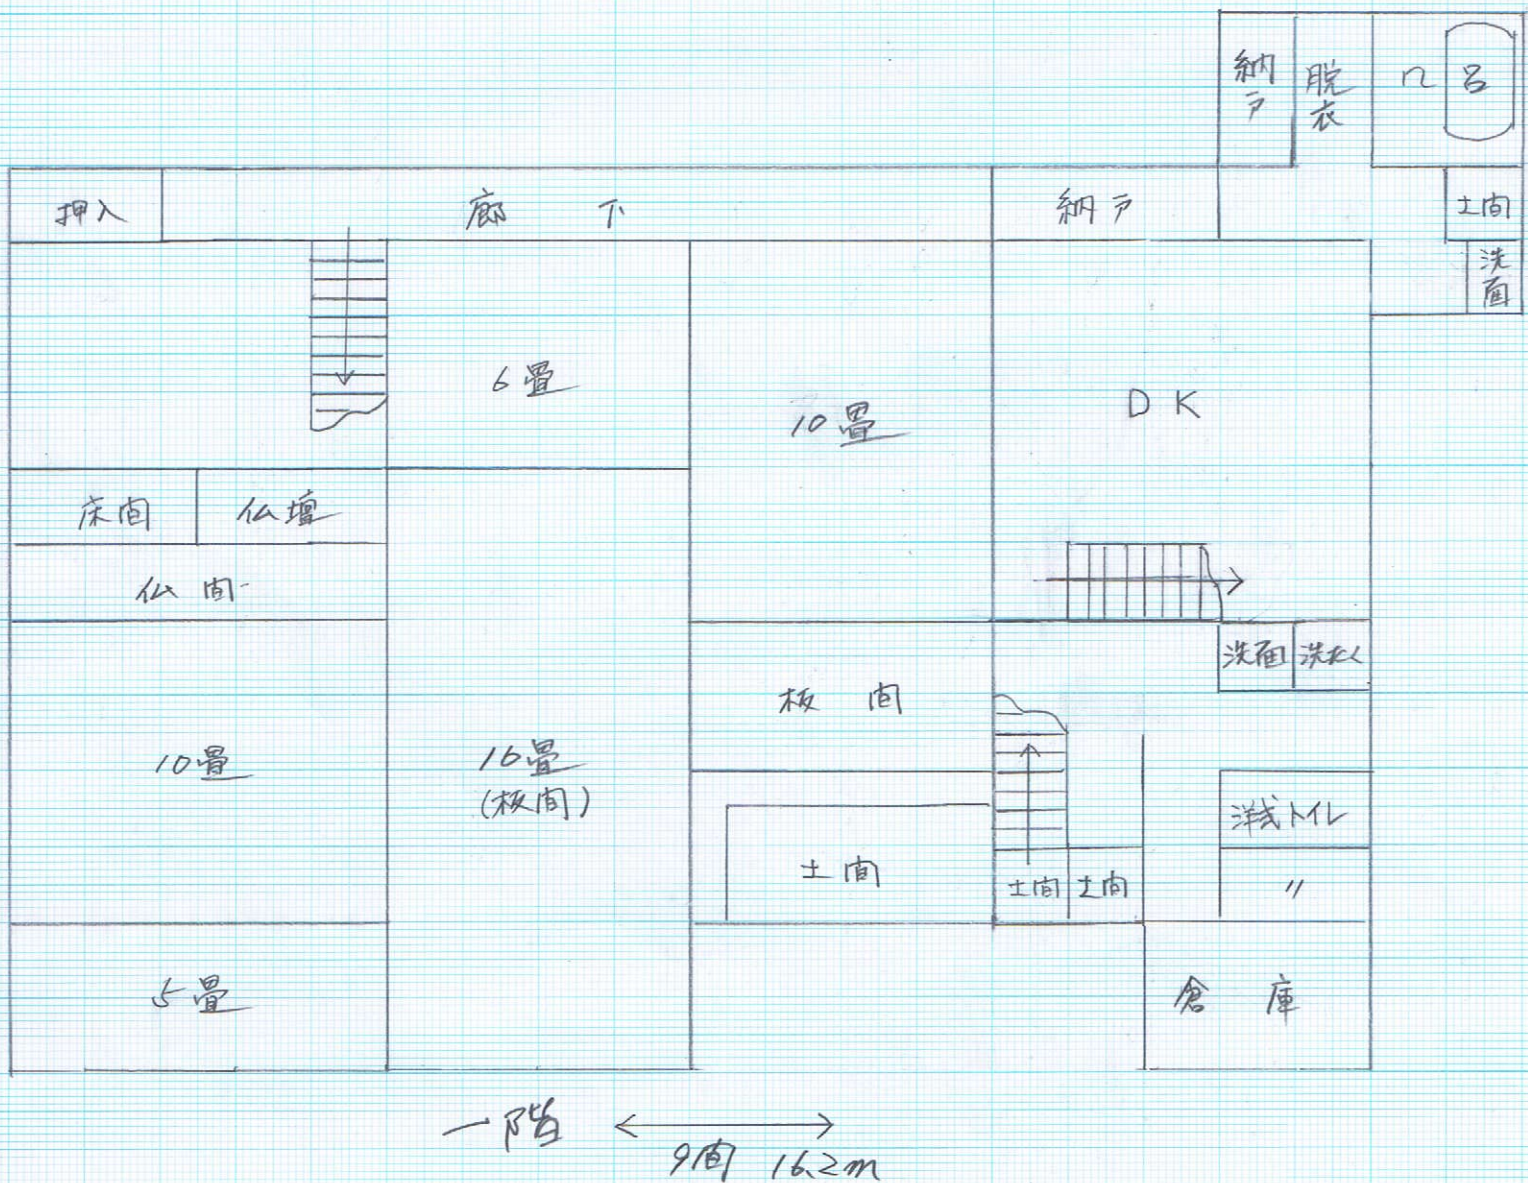 納戸
脱衣
风呂
押入
廊下
納戸
土間
洗面
6畳
10畳
DK
床間
仏壇
仏間
洗面
洗たく
板間
10畳
16畳
(板間)
洋式トイレ
土間
土間
土間
〃
5畳
倉庫
一階
9間 16.2m